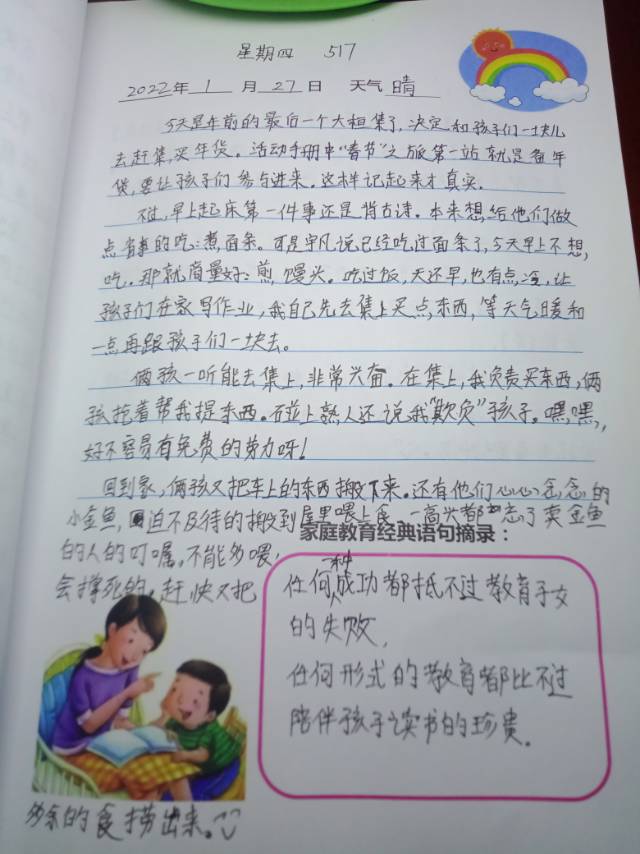 星期四 517
2022年 1 月 27 日 天气 晴
今天是年前的最后一个大相集了,决定和孩子们一块儿
去赶集,买年货。活动手册中“春节”之旅第一站就是备年
货,要让孩子们参与进来。这样记起来才真实.
不过,早上起床第一件事还是背古诗。本来想给他们做
点省事的吃:煮面条。可是宇凡说已经吃过面条了,今天早上不想
吃。那就商量好:煎馒头。吃过饭,天还早,也有点冷,让
孩子们在家写作业,我自己先去集上买点东西,等天气暖和
一点再跟孩子们一块去。
俩孩一听能去集上,非常兴奋。在集上,我负责买东西,俩
孩抢着帮我提东西。碰上熟人还说我“欺负”孩子。嘿嘿,
好不容易有免费的劳力呀!
回到家,俩孩又把车上的东西搬下来。还有他们心心念念的
小金鱼,迫不及待的搬到屋里喂上食,一高兴都忘了卖金鱼
的人的叮嘱,不能多喂,
会撑死的。赶快又把
多余的食捞出来。
家庭教育经典语句摘录:
任何一种成功都抵不过教育子女
的失败.
任何形式的教育都比不过
陪伴孩子读书的珍贵.